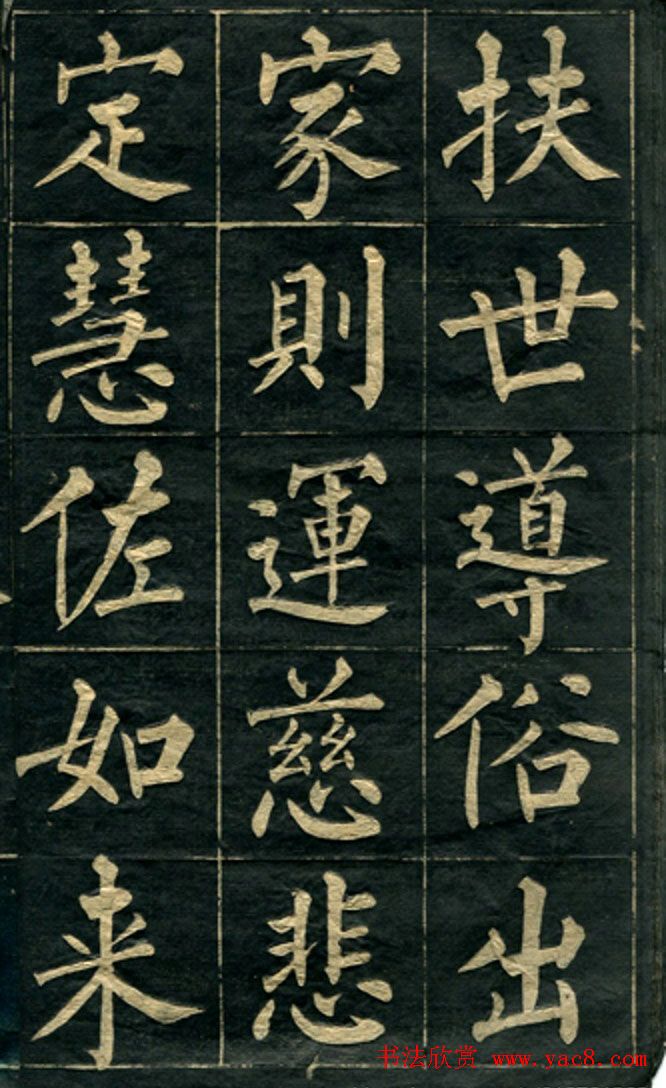 扶世導俗出
家則運慈悲
定慧佐如来
书法欣赏 www.yac8.com